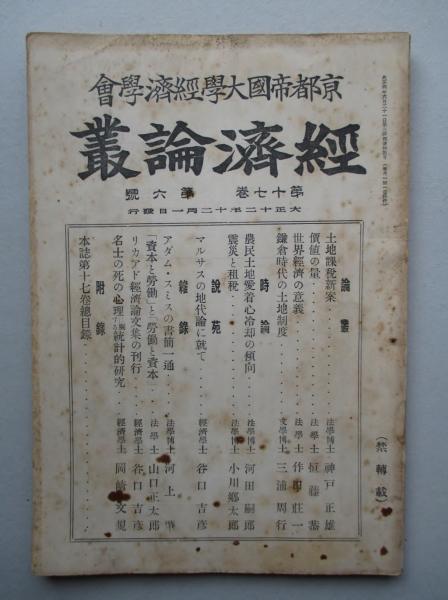 會學濟經學大國帝都京
叢論濟經
號六第 卷七十第
行發日一月二十年二十正大
論叢
土地課稅新案 法學博士 神戶正雄
價値の量 法學士 恒藤恭
世界經濟の意義 法學士 作田莊一
鎌倉時代の土地制度 文學博士 三浦周行
時論
農民土地愛着心冷却の傾向 法學博士 河田嗣郎
震災と租稅 法學博士 小川鄕太郎
說苑
マルサスの地代論に就て 經濟學士 谷口吉彥
雜錄
アダム・スミスの書簡一通 法學博士 河上肇
「資本と勞働」と「勞働と資本」 法學士 山口正太郎
リカアド經濟論文集の刊行 經濟學士 谷口吉彥
名士の死の心理に關する統計的硏究 經濟學士 岡崎文規
附錄
本誌第十七卷總目錄
（禁轉載）